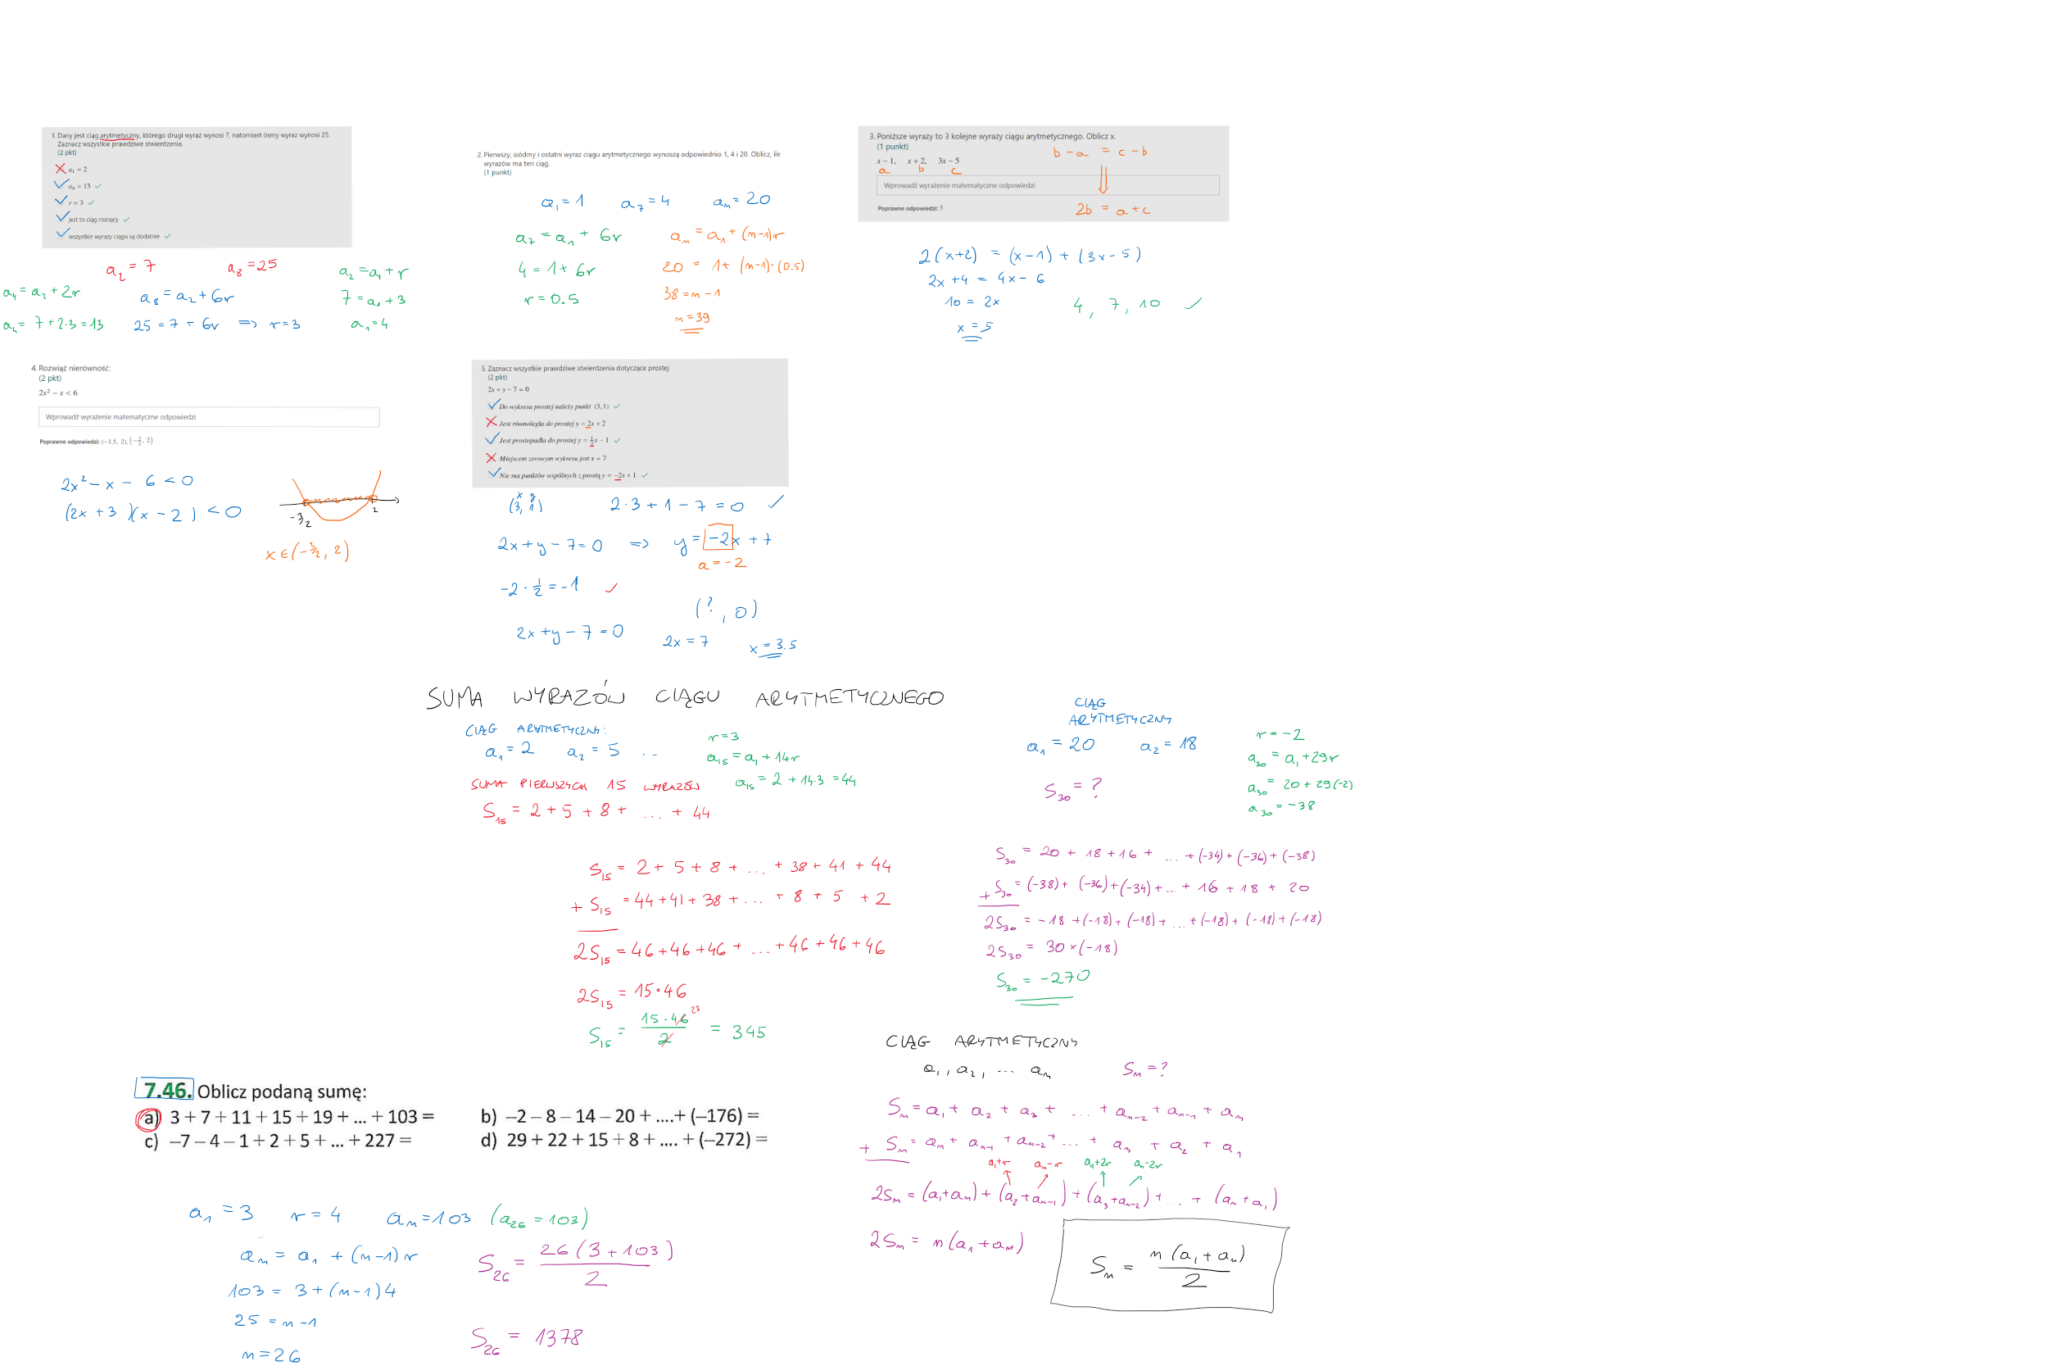 1. Dany jest ciąg arytmetyczny, którego drugi wyraz wynosi 7, natomiast ósmy wyraz wynosi 25.
Zaznacz wszystkie prawdziwe stwierdzenia.
(2 pkt)
a₁ = 2
a₄ = 13 ✓
r = 3 ✓
jest to ciąg rosnący ✓
wszystkie wyrazy ciągu są dodatnie ✓
a₂ = 7 a₈ = 25 a₂ = a₁ + r
a₄ = a₂ + 2r a₈ = a₂ + 6r 7 = a₁ + 3
a₄ = 7 + 2·3 = 13 25 = 7 + 6r => r = 3 a₁ = 4
2. Pierwszy, siódmy i ostatni wyraz ciągu arytmetycznego wynoszą odpowiednio 1, 4 i 20. Oblicz, ile
wyrazów ma ten ciąg.
(1 punkt)
a₁ = 1 a₇ = 4 aₙ = 20
a₇ = a₁ + 6r aₙ = a₁ + (n-1)r
4 = 1 + 6r 20 = 1 + (n-1)·(0.5)
r = 0.5 38 = n - 1
n = 39
3. Poniższe wyrazy to 3 kolejne wyrazy ciągu arytmetycznego. Oblicz x.
(1 punkt)
b - a = c - b
x − 1, x + 2, 3x − 5
a b c
Wprowadź wyrażenie matematyczne odpowiedzi
Poprawne odpowiedzi: 5
2b = a + c
2(x+2) = (x-1) + (3x-5)
2x + 4 = 4x - 6
10 = 2x 4, 7, 10 ✓
x = 5
4. Rozwiąż nierówność:
(2 pkt)
2x² − x < 6
Wprowadź wyrażenie matematyczne odpowiedzi
Poprawne odpowiedzi: (−1.5, 2), (−3/2, 2)
2x² - x - 6 < 0
(2x + 3)(x - 2) < 0
-3/2 2
x ∈ (-3/2, 2)
5. Zaznacz wszystkie prawdziwe stwierdzenia dotyczące prostej
(2 pkt)
2x + y − 7 = 0
Do wykresu prostej należy punkt (3, 1) ✓
Jest równoległa do prostej y = 2x + 2
Jest prostopadła do prostej y = 1/2 x − 1 ✓
Miejscem zerowym wykresu jest x = 7
Nie ma punktów wspólnych z prostą y = −2x + 1 ✓
x y
(3, 1) 2·3 + 1 - 7 = 0 ✓
2x + y - 7 = 0 => y = -2x + 7
a = -2
-2 · 1/2 = -1 ✓
(?, 0)
2x + y - 7 = 0 2x = 7 x = 3.5
SUMA WYRAZÓW CIĄGU ARYTMETYCZNEGO
CIĄG ARYTMETYCZNY:
a₁ = 2 a₂ = 5 ..
r = 3
a₁₅ = a₁ + 14r
a₁₅ = 2 + 14·3 = 44
SUMA PIERWSZYCH 15 WYRAZÓW
S₁₅ = 2 + 5 + 8 + ... + 44
S₁₅ = 2 + 5 + 8 + ... + 38 + 41 + 44
+ S₁₅ = 44 + 41 + 38 + ... + 8 + 5 + 2
2S₁₅ = 46 + 46 + 46 + ... + 46 + 46 + 46
2S₁₅ = 15·46
S₁₅ = 15·46/2 = 345
23
CIĄG
ARYTMETYCZNY
a₁ = 20 a₂ = 18
S₃₀ = ?
r = -2
a₃₀ = a₁ + 29r
a₃₀ = 20 + 29(-2)
a₃₀ = -38
S₃₀ = 20 + 18 + 16 + ... + (-34) + (-36) + (-38)
+ S₃₀ = (-38) + (-36) + (-34) + ... + 16 + 18 + 20
2S₃₀ = -18 + (-18) + (-18) + ... + (-18) + (-18) + (-18)
2S₃₀ = 30 × (-18)
S₃₀ = -270
CIĄG ARYTMETYCZNY
a₁, a₂, ... aₙ Sₙ = ?
Sₙ = a₁ + a₂ + a₃ + ... + aₙ₋₂ + aₙ₋₁ + aₙ
+ Sₙ = aₙ + aₙ₋₁ + aₙ₋₂ + ... + a₃ + a₂ + a₁
a₁+r aₙ-r a₁+2r aₙ-2r
2Sₙ = (a₁+aₙ) + (a₂+aₙ₋₁) + (a₃+aₙ₋₂) + ... + (aₙ+a₁)
2Sₙ = n(a₁+aₙ)
Sₙ = n(a₁+aₙ)/2
7.46. Oblicz podaną sumę:
a) 3 + 7 + 11 + 15 + 19 + ... + 103 = b) −2 − 8 − 14 − 20 + ....+ (−176) =
c) −7 − 4 − 1 + 2 + 5 + ... + 227 = d) 29 + 22 + 15 + 8 + .... + (−272) =
a₁ = 3 r = 4 aₙ = 103 (a₂₆ = 103)
aₙ = a₁ + (n-1)r
103 = 3 + (n-1)4
25 = n - 1
n = 26
S₂₆ = 26(3+103)/2
S₂₆ = 1378